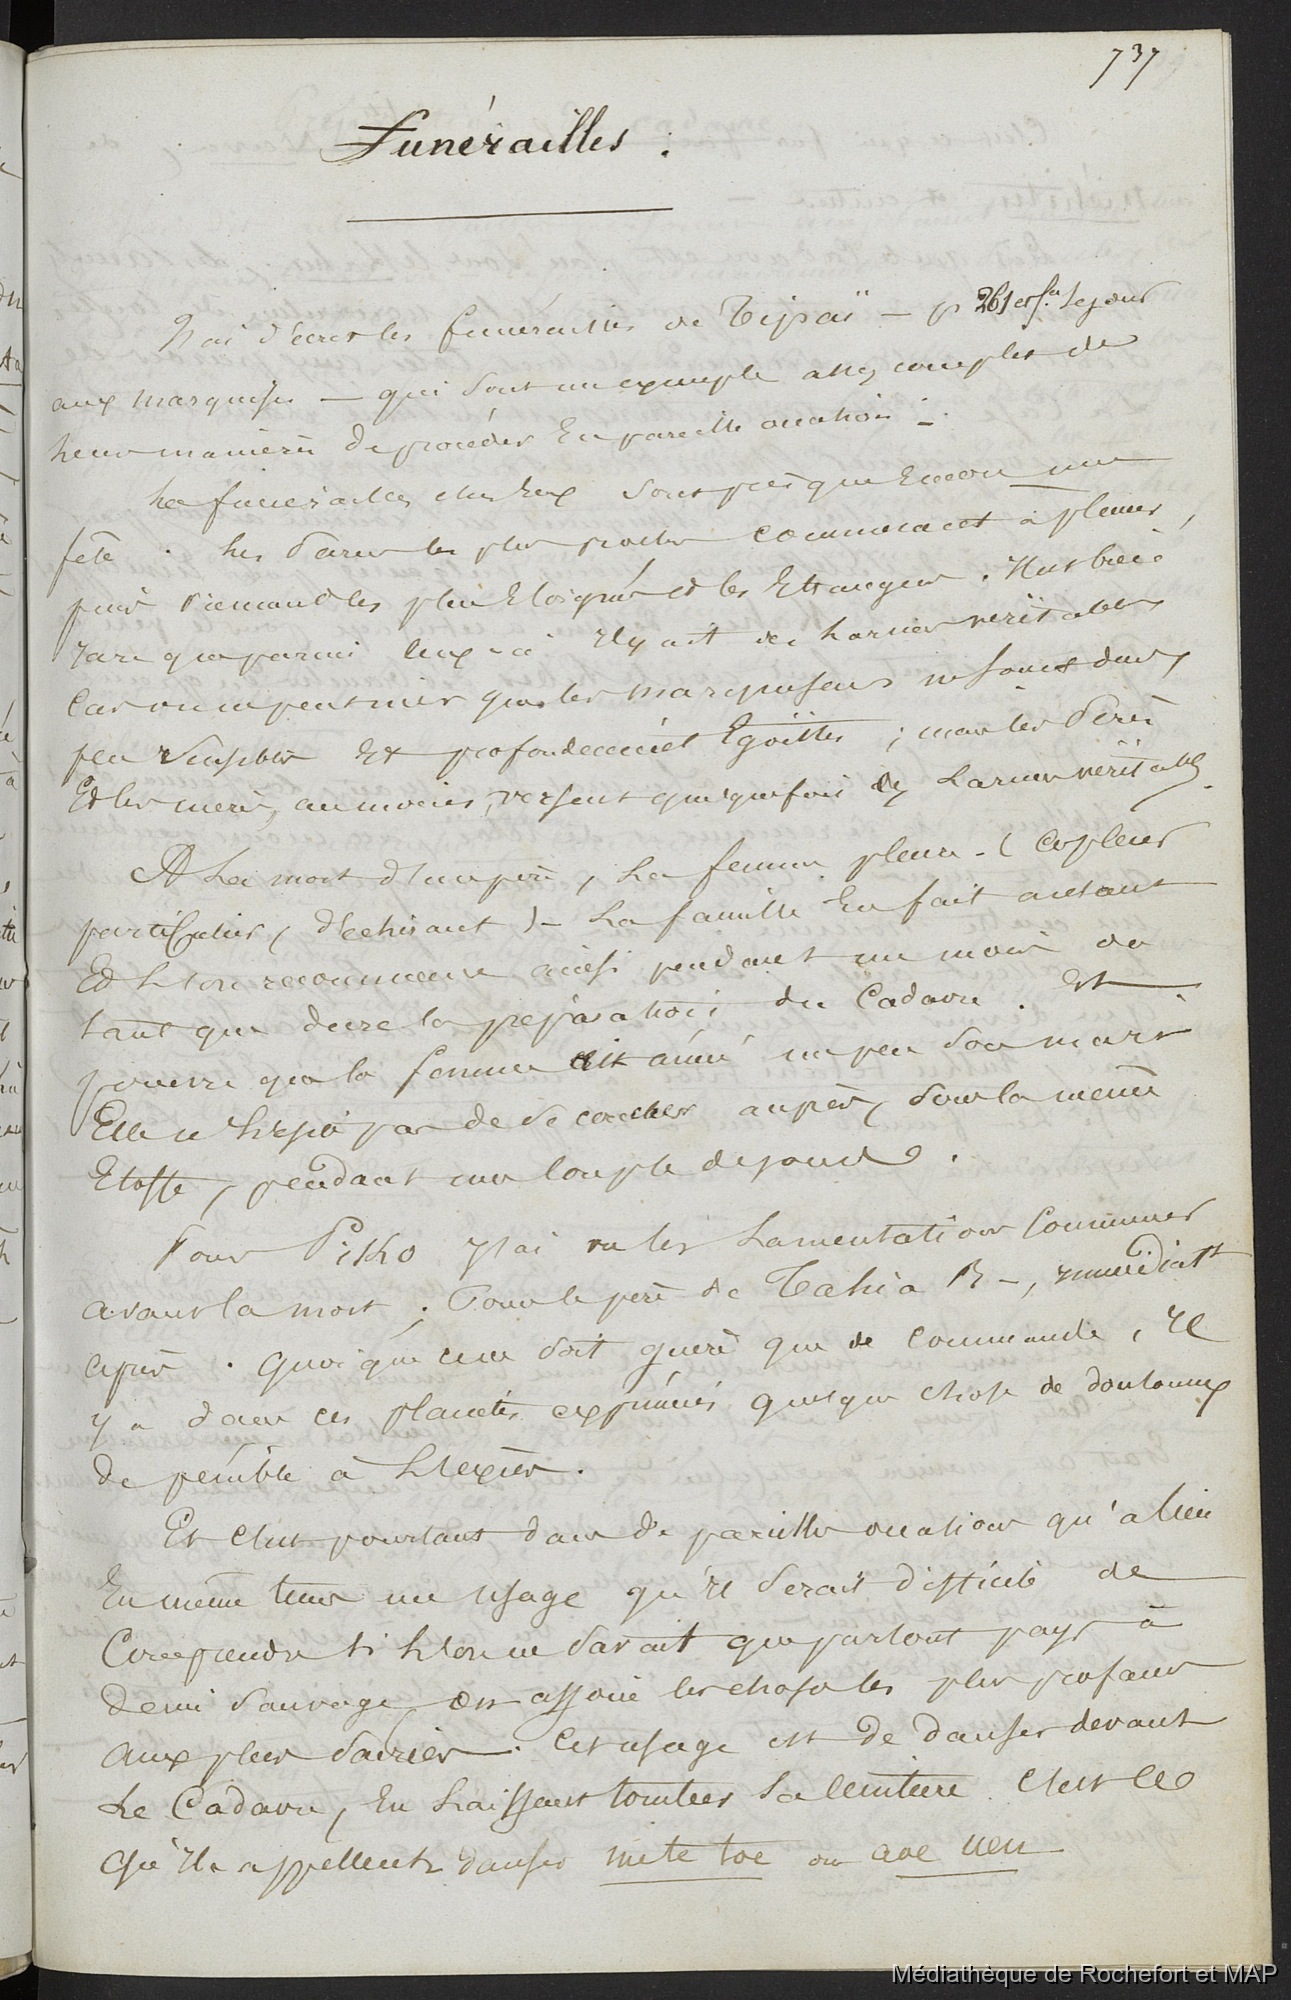 737
Funérailles :
J'ai décrit les funérailles de Tipaï — p 261 et s. Séjour
aux marquises — qui sont un exemple assez complet de
leur manière de procéder En pareille occasion —
Les funérailles chez Eux sont presque Encore une
fête . Les parents les plus proches commencent à pleurer,
puis viennent les plus Eloignés et les Etrangers . Il est bien
rare que parmi ceux-ci Il y ait des larmes véritables
Car on ne peut nier que les marquisiens ne soient durs,
peu sensibles Et profondément Egoïstes ; mais les pères
Et les mères, au moins, versent quelquefois des larmes véritables.
A la mort d'un père, la femme pleure - ( Ces pleurs
particuliers, déchirants ) - La famille En fait autant
Et l'on recommence ainsi pendant un mois ou
tant que dure la préparation du Cadavre . Et
pourvu que la femme ait aimé un peu son mari
Elle ne laisse pas de se coucher auprès, sous la même
Etoffe, pendant une couple de jours .
Pour Pikko j'ai vu les lamentations Commencer
avant la mort ; Pour le père de Tahia R -, immédiatt
après . Quoique ce ne soit guère que de commande, Il
y a dans ces plaintes exprimées quelque chose de douloureux
de pénible à l'Excès .
Et c'est pourtant dans de pareilles occasions qu'a lieu
En même tems un usage qu'Il serait difficile de
Comprendre si l'on ne savait que partout pays à
demi sauvage, on associe les choses les plus profanes
aux plus sacrées . Cet usage est de danser devant
Le Cadavre, En laissant tomber sa ceinture . C'est ce
qu'Ils appellent danser